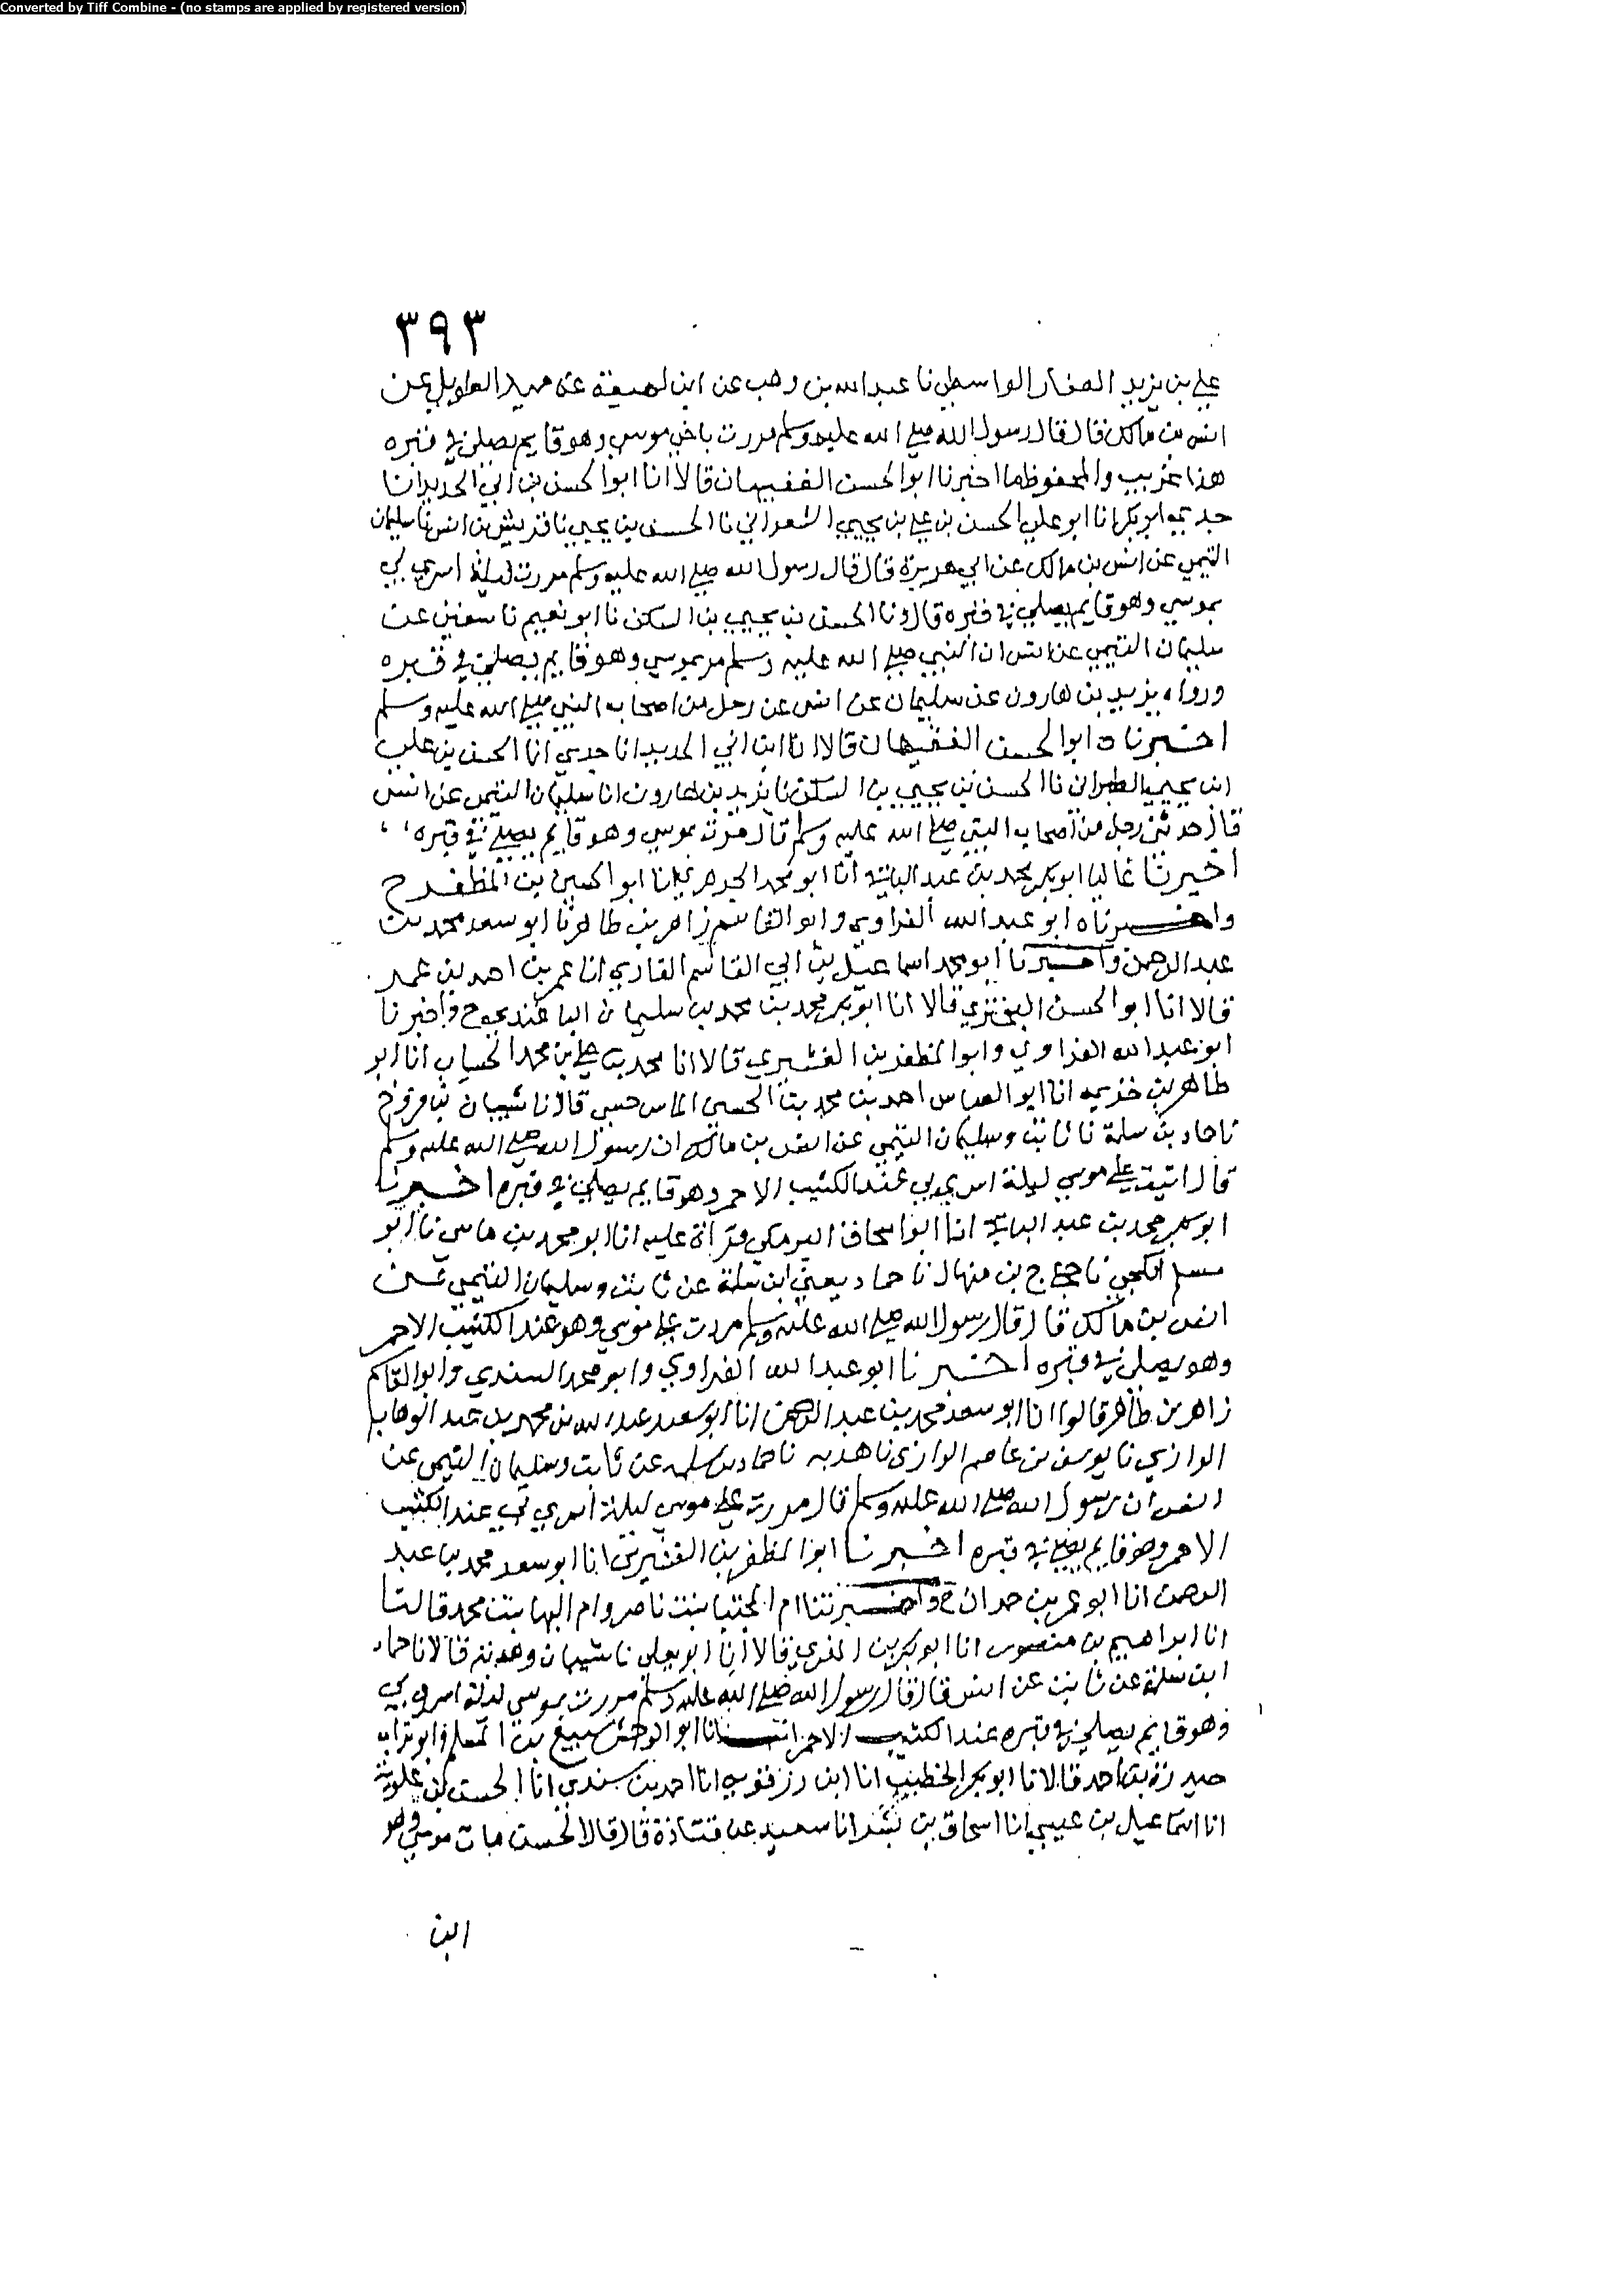 Converted by Tiff Combine - (no stamps are applied by registered version)
٣٩٣
علي بن يزيد الصفار الواسطي نا عبد الله بن وهب عن ابن لهيعة عن حميد الطويل عن
انس بن مالك قال قال رسول الله صلى الله عليه وسلم مررت باخي موسى وهو قايم يصلي في قبره
هذا غريب والمحفوظ ما اخبرنا ابوا الحسن الفقيهان قالا انا ابو الحسن بن ابي الحديد انا
جدي ابو بكر انا ابو علي الحسن بن علي بن يحيى الشعراني نا الحسن بن يحيى نا قريش بن انس نا سليمان
التيمي عن انس بن مالك عن ابي هريرة قال قال رسول الله صلى الله عليه وسلم مررت ليلة اسري بي
بموسى وهو قايم يصلي في قبره قال ونا الحسن بن يحيى بن السكن نا ابو نعيم نا سفين عن
سليمان التيمي عن انس ان النبي صلى الله عليه وسلم مر بموسى وهو قايم يصلي في قبره
ورواه يزيد بن هارون عن سليمان عن انس عن رجل من اصحاب النبي صلى الله عليه وسلم
اخبرناه ابوا الحسن الفقيهان قالا انا ابن ابي الحديد انا جدي انا الحسن بن علي
ابن يحيى نا الحسن بن يحيى بن السكن نا يزيد بن هارون انا سليمان التيمي عن انس
قال حدثني رجل من اصحاب النبي صلى الله عليه وسلم قال مررت بموسى وهو قايم يصلي في قبره
اخبرنا عاليا ابو بكر محمد بن عبد الباقي انا ابو محمد الجوهري انا ابو الحسين بن المظفر ح
واخبرناه ابو عبد الله الفراوي وابو القاسم زاهر بن طاهر نا ابو سعد محمد بن
عبد الرحمن واخبرنا ابو محمد اسماعيل بن ابي القاسم القاري انا عمر بن احمد بن عمر
قالا انا ابو الحسن قالا انا ابو بكر محمد بن محمد بن سليمان الباغندي ح واخبرنا
ابو عبد الله الفراوي وابو المظفر بن القشيري قالا انا محمد بن علي بن محمد الخشاب انا ابو
طاهر بن خزيمه انا ابو العباس احمد بن محمد بن الحسين الماسرجسي قال نا شيبان بن فروخ
نا حماد بن سلمة نا ثابت وسليمان التيمي عن انس بن مالك ان رسول الله صلى الله عليه وسلم
قال اتيت على موسى ليلة اسري بي عند الكثيب الاحمر وهو قايم يصلي في قبره اخبرنا
ابو بكر محمد بن عبد الباقي انا ابو اسحاق البرمكي قراة عليه انا ابو محمد بن ماسي نا ابو
مسلم الكجي نا حجاج بن منهال نا حماد يعني ابن سلمة عن ثابت وسليمان التيمي عن
انس بن مالك قال قال رسول الله صلى الله عليه وسلم مررت على موسى وهو عند الكثيب الاحمر
وهو يصلي في قبره اخبرنا ابو عبد الله الفراوي وابو محمد السندي وابو القاسم
زاهر بن طاهر قالوا انا ابو سعد محمد بن عبد الرحمن انا ابو سعيد عبد الله بن محمد بن عبد الوهاب
الرازي نا يوسف بن عاصم الرازي نا هدبه نا حماد بن سلمه عن ثابت وسليمان التيمي عن
انس ان رسول الله صلى الله عليه وسلم قال مررت على موسى ليلة اسري بي عند الكثيب
الاحمر وهو قايم يصلي في قبره اخبرنا ابو المظفر بن القشيري انا ابو سعد محمد بن عبد
الرحمن انا ابو عمر بن حمدان ح واخبرتنا ام المجتبا بنت ناصر وام البها بنت محمد قالتا
انا ابراهيم بن منصور انا ابو بكر بن المقري قالا انا ابو يعلى نا شيبان وهدبة قالا نا حماد
ابن سلمة عن ثابت عن انس قال قال رسول الله صلى الله عليه وسلم مررت بموسى ليلة اسري بي
وهو قايم يصلي في قبره عند الكثيب الاحمر انبانا ابو الوحش سبيع بن المسلم وابو تراب
حيدرة بن احمد قالا نا ابو بكر الخطيب انا ابن رزقويه انا احمد بن سندي انا الحسن بن علويه
انا اسماعيل بن عيسى انا اسحاق بن بشر انا سعيد عن قتادة قال قال الحسن مات موسى وهو
ابن